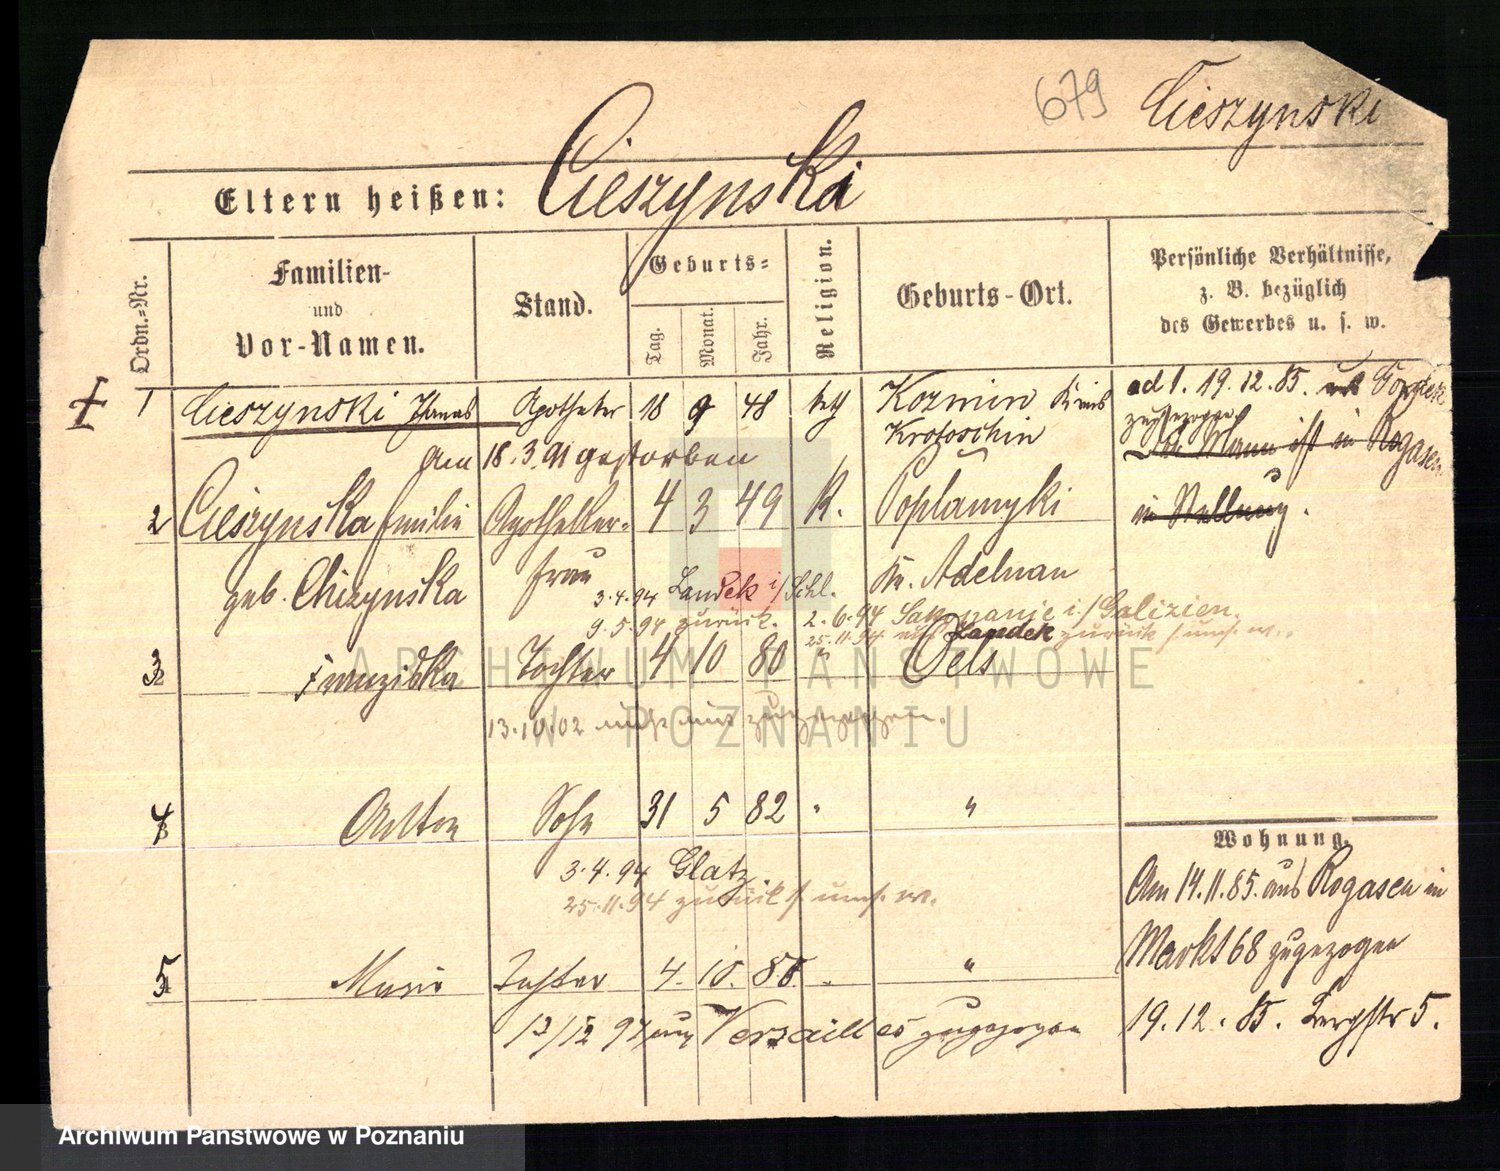 679 Cieszynski
Eltern heißen: Cieszynski
Ordn.-Nr.
Familien-
und
Vor-Namen.
Stand.
Geburts-
Tag.
Monat.
Jahr.
Religion.
Geburts-Ort.
Persönliche Verhältnisse,
z. B. bezüglich
des Gewerbes u. s. w.
1 Cieszynski Apotheker 18 9 48 kath Kozmin Kreis
Krotoschin
ad 1. 19.12.85.
zugezogen
Der Mann ist in Rogasen
in Stellung.
Am 18.3.91 gestorben
2 Cieszynska Emilie Apotheker- 4 3 49 K.
geb. frau Kr. Adelnau
3.4.94 Landek i/Schl.
9.5.94 zurück.
2.6.94 i./Galizien.
25.11.94 aus Landek zurück
3 Franziska Tochter 4 10 80 " Oels
13.10.02 zugezogen.
4 Anton Sohn 31 5 82 " "
3.4.94 Glatz.
25.11.94 zurück
5 Marie Tochter 4. 10. 85. "
13/12 94 aus Versailles zugezogen
Wohnung.
Am 14.11.85. aus Rogasen in
Markt 68 zugezogen
19.12.85. Bergstr 5.
ARCHIWUM PAŃSTWOWE
W POZNANIU
Archiwum Państwowe w Poznaniu